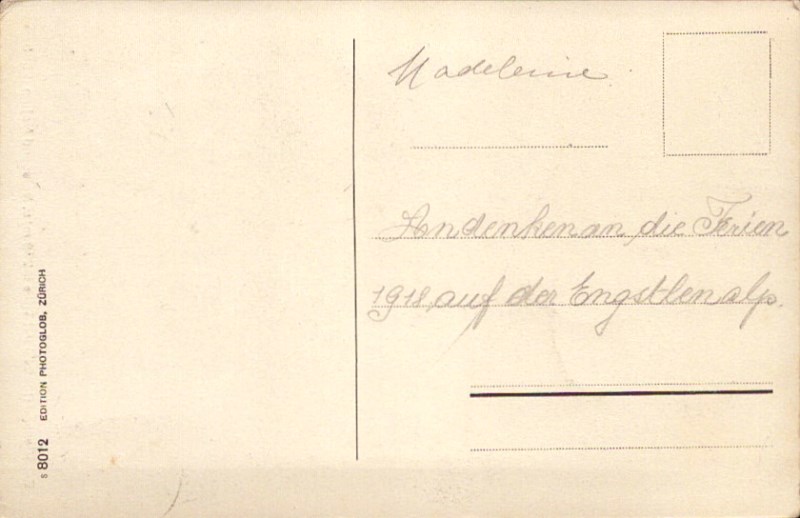 Madeleine
Andenken an die Ferien
1918, auf der Engstlenalp.
S 8012 EDITION PHOTOGLOB, ZÜRICH